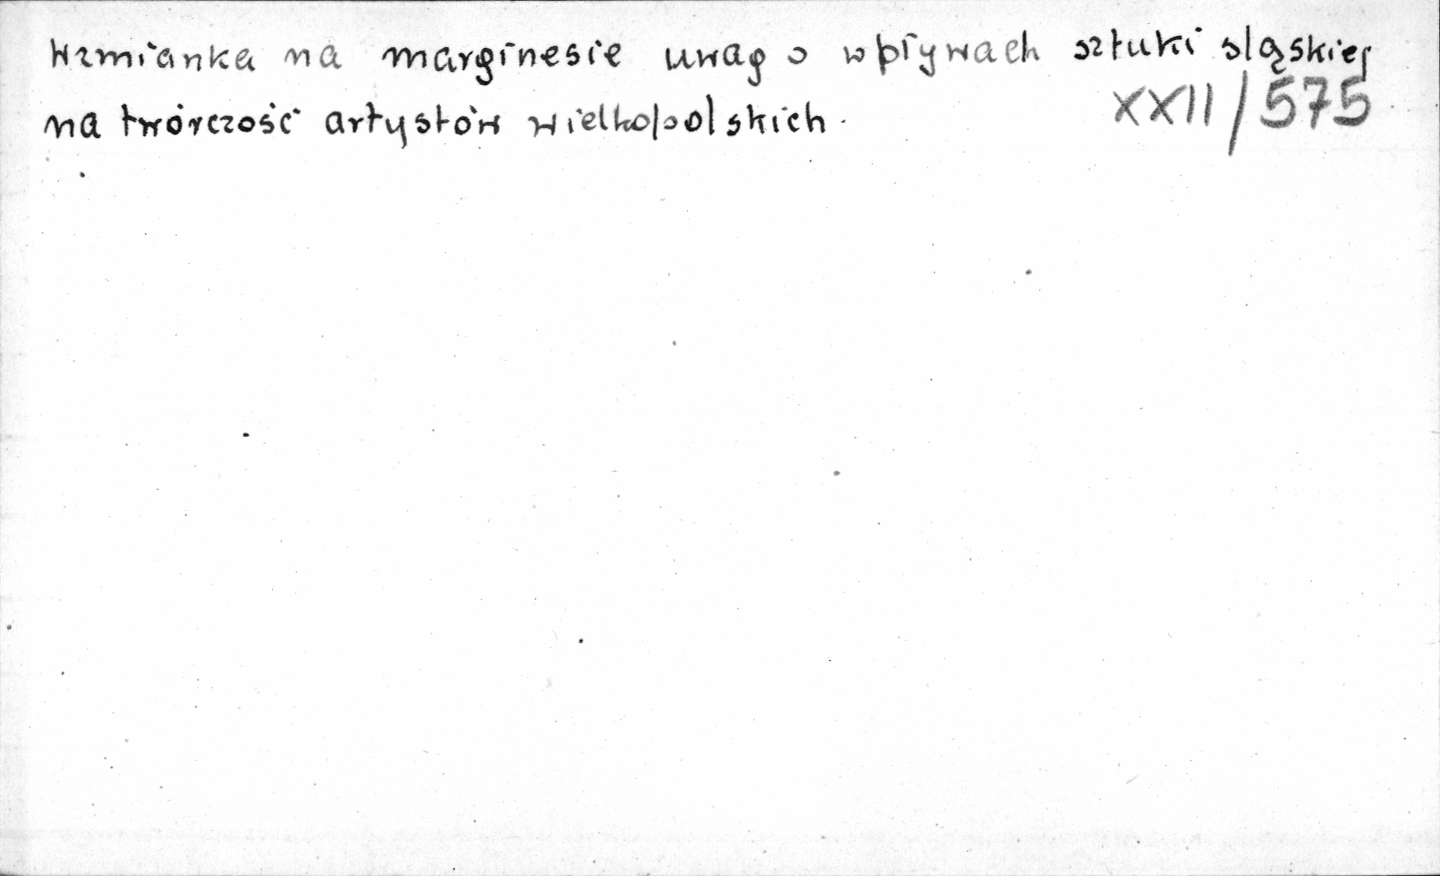 Wzmianka na marginesie uwag o wpływach sztuki śląskiej
na twórczość artystów wielkopolskich.
XXII/575